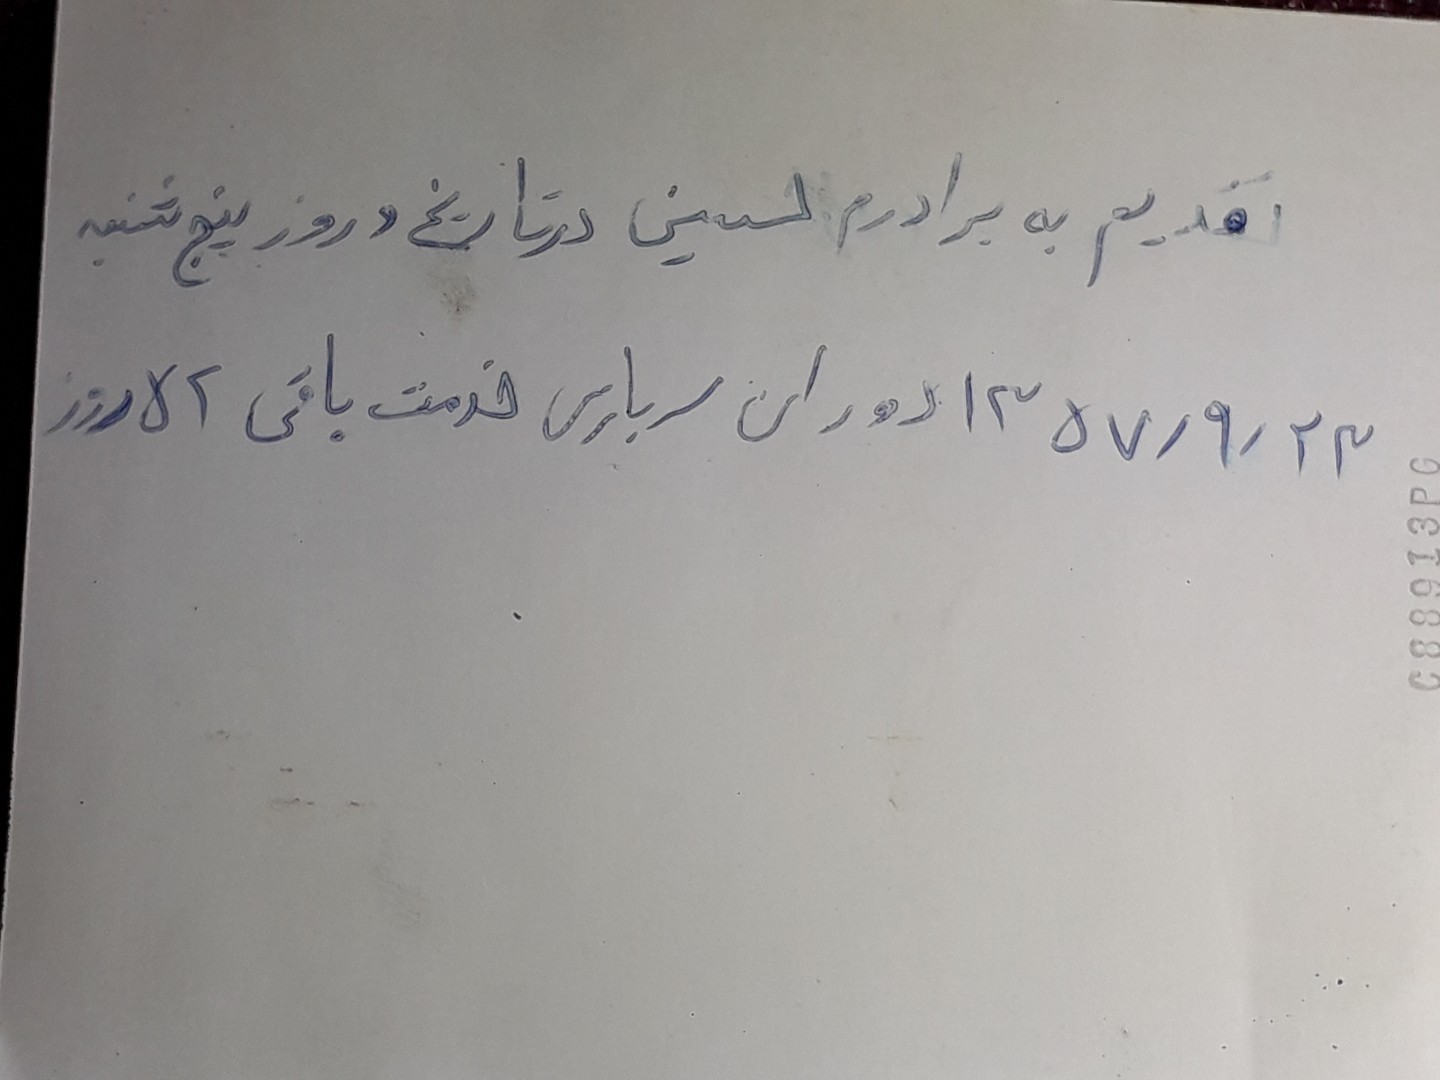 تقدیم به برادرم حسین در تاریخ و روز پنج شنبه
۱۳۵۷/۹/۲۳ دوران سربازی خدمت باقی ۵۲ روز
G88913PG